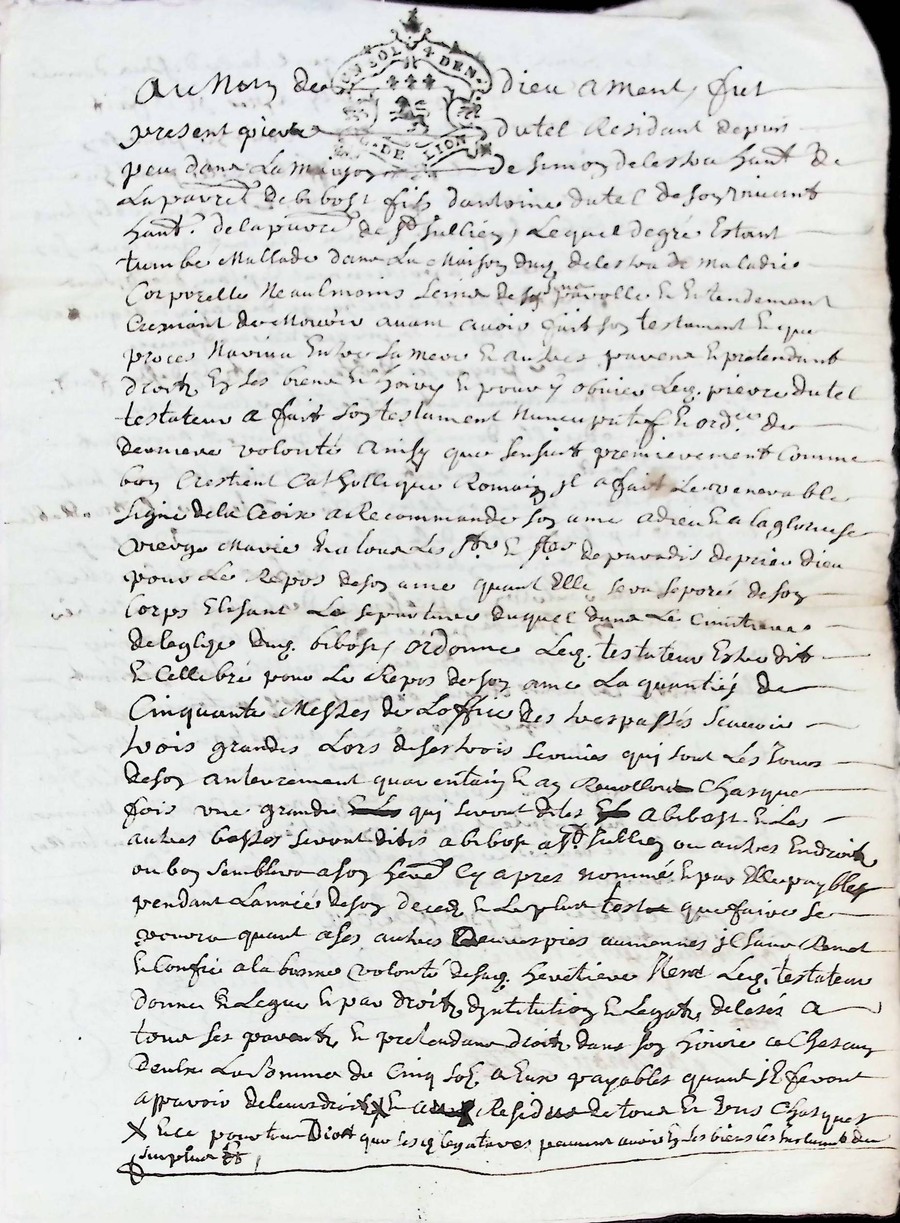 UN SOL 4 DEN.
G. DE LION
Au Nom de Dieu Ament, fut
present pierre dutel Residant depuis
peu dans La maison de Simon delestra hant de
La parre de bibost fils dantoine dutel de son vivant
hant de la parre de St Jullien, Lequel degré Estant
tumbe Mallade dans La Maison dud delestra de maladie
Corporelle Neaulmoins Seine de parolle Et Entendement
Cregniant de Mourir avant avoir fait son testament Et que
proces Navint Entre Sa mere Et autres parens Et pretendant
droitz En Ses biens Et hoirie Et pour y obvier Led. pierre dutel
testateur a fait Son testament Nuncupatif Et ord.ce de
derniere volonté Ainsy que Sensuit premierement Comme
bon Crestient Catholicque Romain jl a fait Le venerable
Signe de la Croix a Recommande Son ame a dieu Et a la glorieuse
vierge Marie Et a tous Les Sts Et Stes de paradis de prier dieu
pour Le Repos de Son ame quant Elle Sera Seporés de Son
Corps Elisant La Sepurture duquel dans Le Cimitiere
de leglize dud. bibost, ordonne Led. testateur Estre dit
Et Cellebré pour Le Repos de Son ame La quantité de
Cinquante Messes de Loffice des trespassés Scavoir
trois grandes Lors de Ses trois Services qui Sont Les Jours
de Son anterrement quarentain Et an Revollu Chasque
fois une grande qui Seront dites a bibost Et Les
autres basses Seront dites a bibost a St Jullien ou autres Endroitz
ou bon Semblera a Son herre Cy apres nommé Et par Elle payables
pendant Lannée de Son decedz Et Le plus tost que faire Se
pourra quant a Ses autres Oeuvres pies aumonnes jl San Remet
Et Confie a la bonne volonté de Sad. heretiere Item Led. testateur
donne Et Legue Et par droit dinstitution Et Legatz delesés a
tous Ses parentz Et pretendans droitz dans Son hoirie a Chescun
dentre La Somme de Cinq Solz a Eux payables quant jl feront
apparoir de leurs droitz X Et au Residus de tous Et Uns Chasques
X Et ce pour tous Droit que lesd legataires peuvent avoir En Ses biens Les du
Surplus